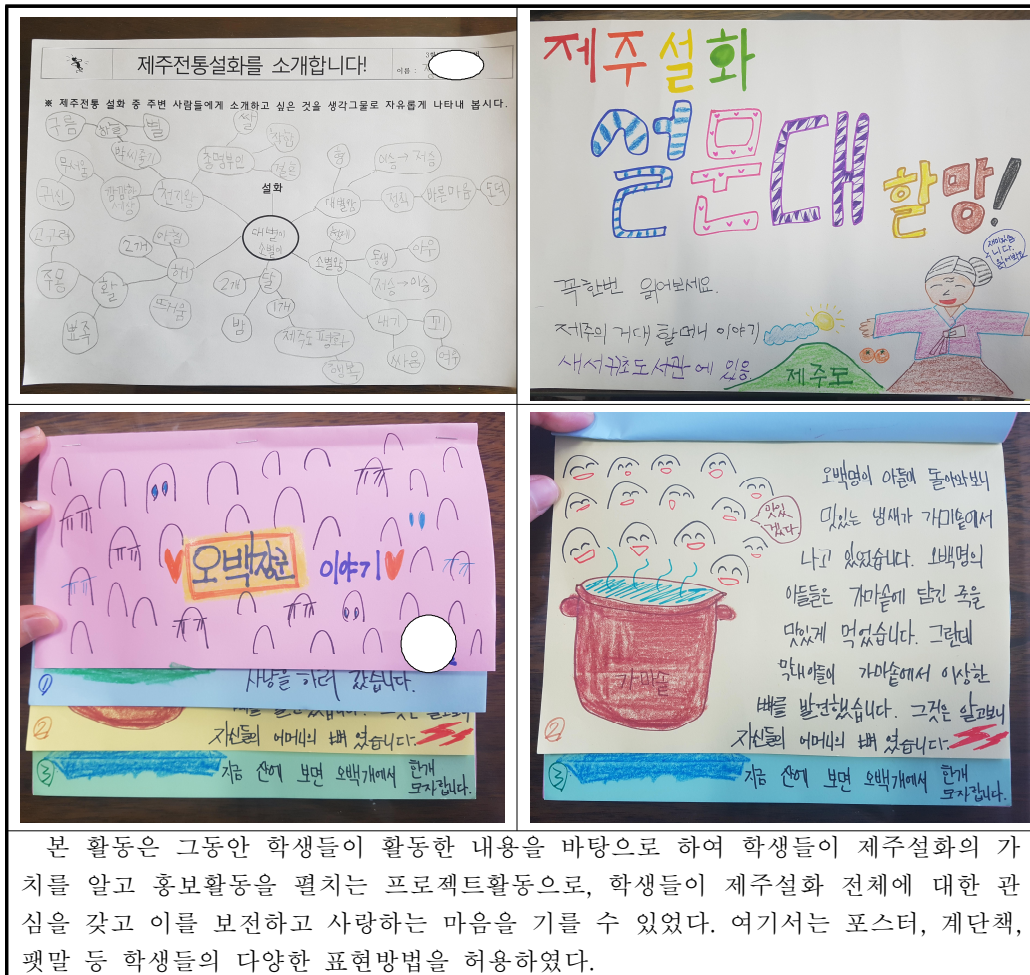 제주전통설화를 소개합니다!
3학
이름 :
※ 제주전통 설화 중 주변 사람들에게 소개하고 싶은 것을 생각그물로 자유롭게 나타내 봅시다.
설화
대별이
소별이
구름
하늘
별
박씨줄기
무서움
귀신
깜깜한
세상
천지왕
총명부인
쌀
착함
결혼
대별왕
형
이승→저승
정화
바른마음
도덕
소별왕
형제
동생
아우
저승→이승
내기
꾀
싸움
여우
고구려
주몽
활
뾰족
해
2개
아침
뜨거움
달
2개
밤
1개
제주도 평화
행복
제주설화
설문대
할망!
재미있습
니다.
읽어봐요
꼭한번 읽어보세요.
제주의 거대 할머니 이야기
새서귀포도서관에 있음
제주도
오백장군 이야기
1
사냥을 하러 갔습니다.
2
자신들의 어머니의 뼈 였습니다.
3
지금 산에 보면 오백개에서 한개
모자랍니다.
맛있
겠다
가마솥
오백명이 아들이 돌아와보니
맛있는 냄새가 가미솥에서
나고 있었습니다. 오백명의
아들들은 가마솥에 담긴 죽을
맛있게 먹었습니다. 그런데
막내아들이 가마솥에서 이상한
뼈를 발견했습니다. 그것은 알고보니
자신들의 어머니의 뼈 였습니다.
2
3
지금 산에 보면 오백개에서 한개
모자랍니다.
본 활동은 그동안 학생들이 활동한 내용을 바탕으로 하여 학생들이 제주설화의 가
치를 알고 홍보활동을 펼치는 프로젝트활동으로, 학생들이 제주설화 전체에 대한 관
심을 갖고 이를 보전하고 사랑하는 마음을 기를 수 있었다. 여기서는 포스터, 계단책,
팻말 등 학생들의 다양한 표현방법을 허용하였다.